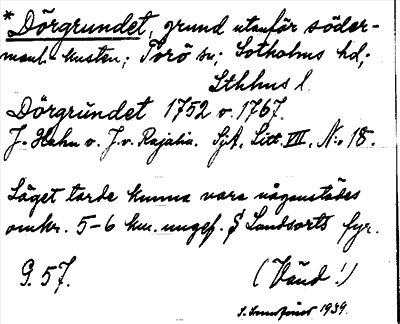 *Dörgrundet, grund utanför söder-
manl. kusten; Torö sn; Sotholms hd;
Sthlms l.
Dörgrundet 1752 o. 1767.
J. Hahn o. J. v. Rajalin. SjA, Litt. VII, N:o 18.
Läget torde kunna vara någonstädes
omkr. 5-6 km. ungef. S Landsorts fyr.
G. 57.
(Vänd!)
1939.